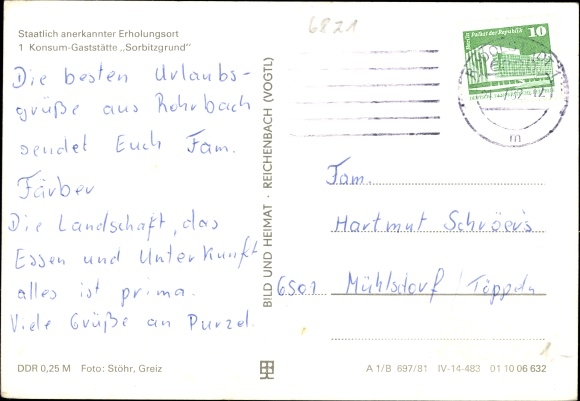 6821
Staatlich anerkannter Erholungsort
1 Konsum-Gaststätte „Sorbitzgrund"
Die besten Urlaubs-
grüße aus Rohrbach
sendet Euch Fam.
Färber
Die Landschaft, das
Essen und Unterkunft
alles ist prima.
Viele Grüße an Purzel.
DDR 0,25 M Foto: Stöhr, Greiz
BILD UND HEIMAT · REICHENBACH (VOGTL)
Palast der Republik 10
m
Fam.
Hartmut Schröers
6501 Mühlsdorf / Töppeln
1.-
A 1/B 697/81 IV-14-483 01 10 06 632